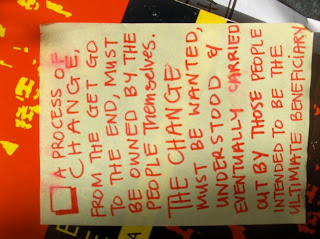 A PROCESS OF
CHANGE,
FROM THE GET GO
TO THE END, MUST
BE OWNED BY THE
PEOPLE THEMSELVES.
THE CHANGE
MUST BE WANTED,
UNDERSTOOD &
EVENTUALLY CARRIED
OUT BY THOSE PEOPLE
INTENDED TO BE THE
ULTIMATE BENEFICIARY